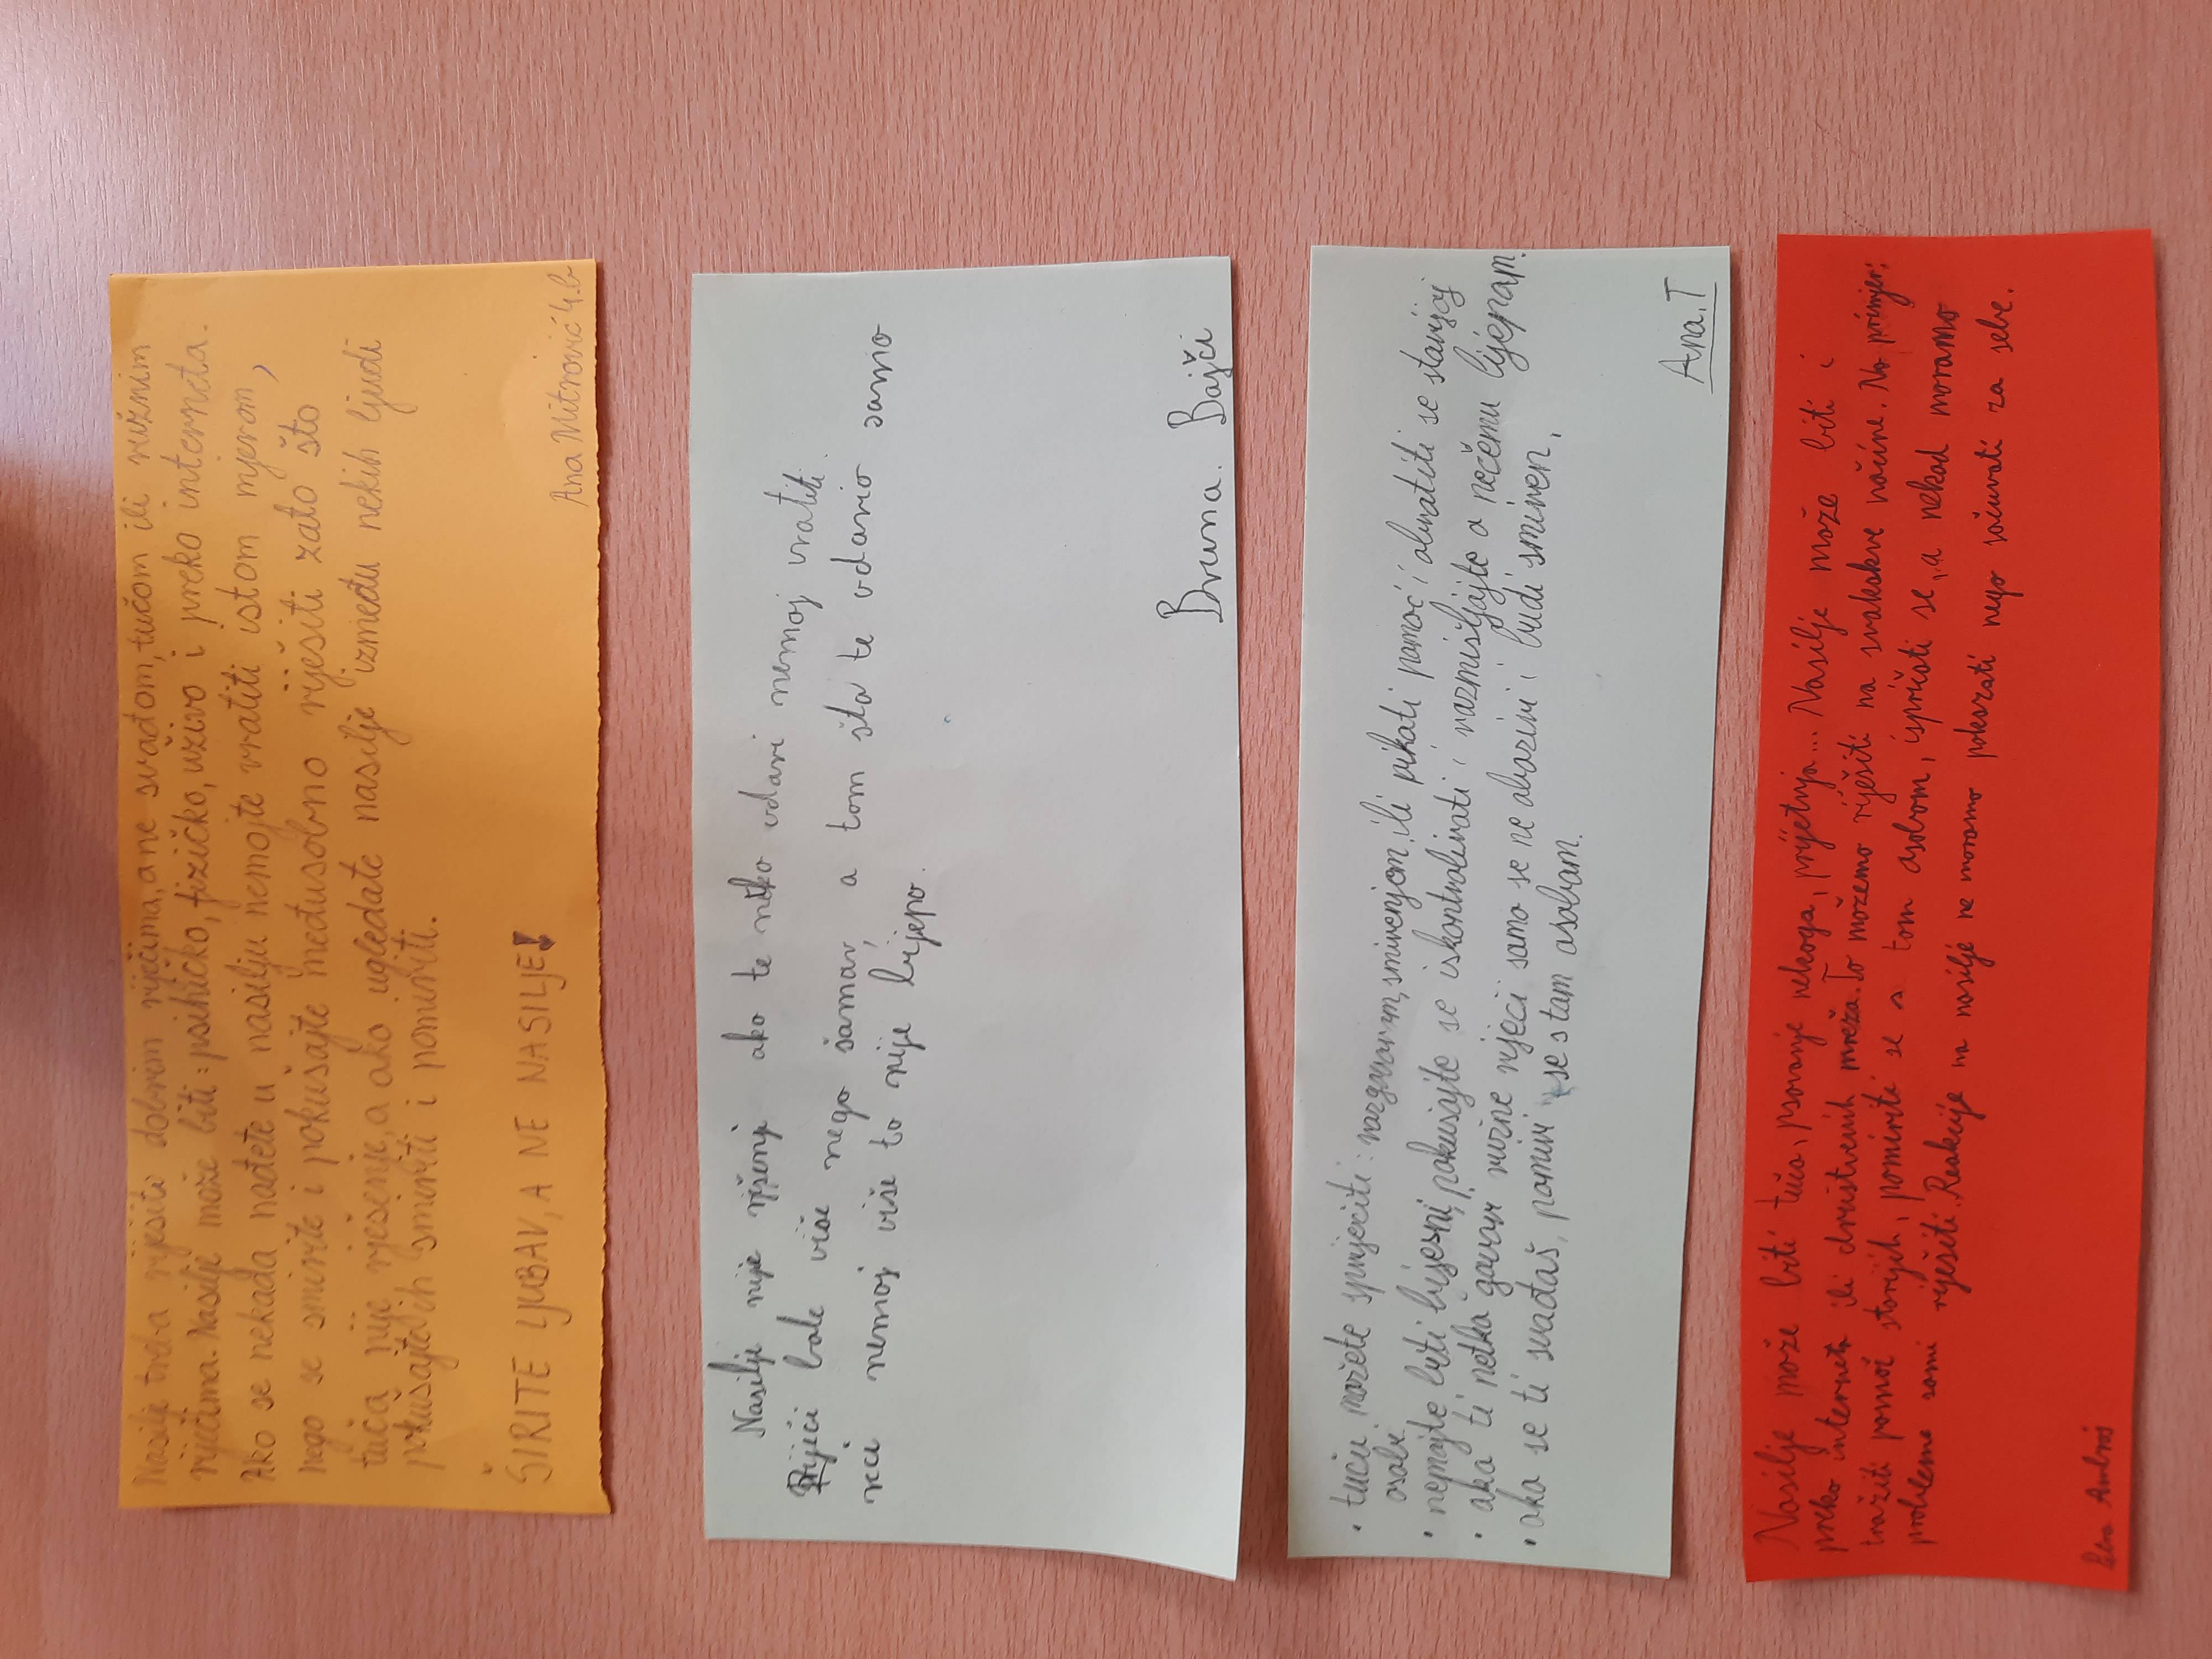 Nasilje treba riješiti dobrim riječima, a ne svađom, tučom ili ružnim
riječima. Nasilje može biti: psihičko, fizičko, uživo i preko interneta.
Ako se nekada nađete u nasilju nemojte vratiti istom mjerom,
nego se smirite i pokušajte međusobno riješiti zato što
tuča nije rješenje, a ako ugledate nasilje između nekih ljudi
pokušajte ih smiriti i pomiriti.
ŠIRITE LJUBAV, A NE NASILJE!
Ana Mitrović 4.b
Nasilje nije rješenje ako te netko udari nemoj vratiti.
Riječi bole više nego šamar, a tom šta te udario samo
reci nemoj više to nije lijepo.
Bruna. Bajči
• tuču možete spriječiti: razgovorom, smirenjem, ili pikati pomoć i obratiti se starijoj
osobi.
• nemojte biti bijesni, pokušajte se iskontrolirati i razmišljajte o nečemu lijepom.
• ako ti netko govori ružne riječi samo se ne obaziri i budi smiren,
• ako se ti svađaš, pomiri se s tom osobom.
Ana.T
Nasilje može biti tuča, psovanje nekoga, prijetnja... Nasilje može biti i
preko interneta ili društvenih mreža. To možemo riješiti na svakakve načine. Na primjer:
tražiti pomoć starijih, pomiriti se s tom osobom, ispričati se, a nekad moramo
probleme sami riješiti. Reakcije na nasilje ne moramo pokazati nego sačuvati za sebe.